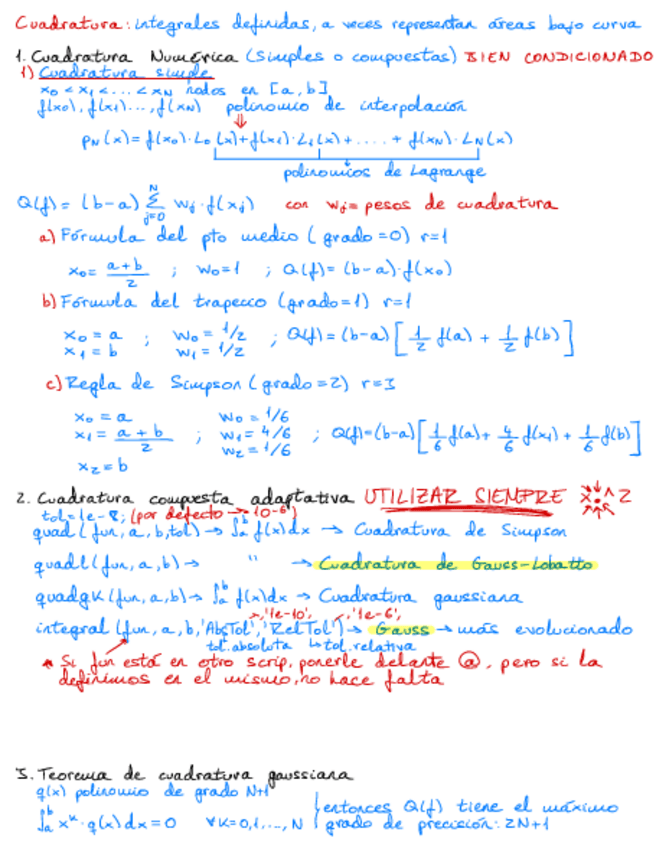 Cuadratura: integrales definidas, a veces representan áreas bajo curva
1. Cuadratura Numérica (simples o compuestas) BIEN CONDICIONADO
1) Cuadratura simple
x₀ < x₁ < ... < x_N nodos en [a,b]
f(x₀), f(x₁)..., f(x_N) polinomio de interpolación
⇓
p_N(x) = f(x₀)·L₀(x) + f(x₁)·L₁(x) + .... + f(x_N)·L_N(x)
polinomios de Lagrange
Q(f) = (b-a) Σ_{j=0}^{N} w_j·f(x_j) con w_j = pesos de cuadratura
a) Fórmula del pto medio (grado=0) r=1
x₀ = (a+b)/2 ; w₀=1 ; Q(f) = (b-a)·f(x₀)
b) Fórmula del trapecio (grado=1) r=1
x₀ = a ; w₀ = 1/2 ; Q(f) = (b-a) [1/2 f(a) + 1/2 f(b)]
x₁ = b w₁ = 1/2
c) Regla de Simpson (grado=2) r=3
x₀ = a w₀ = 1/6
x₁ = (a+b)/2 ; w₁ = 4/6 ; Q(f)=(b-a)[1/6 f(a) + 4/6 f(x₁) + 1/6 f(b)]
w₂ = 1/6
x₂=b
2. Cuadratura compuesta adaptativa UTILIZAR SIEMPRE
tol=1e-8; (por defecto → 10⁻⁶)
quad(fun,a,b,tol) → ∫ₐᵇ f(x)dx → Cuadratura de Simpson
quadl(fun,a,b) → " → Cuadratura de Gauss-Lobatto
quadgk(fun,a,b) → ∫ₐᵇ f(x)dx → Cuadratura gaussiana
,'1e-10', ,'1e-6',
integral (fun,a,b,'AbsTol','RelTol') → Gauss → más evolucionado
tol.absoluta ↳tol.relativa
* Si fun está en otro scrip, ponerle delante @, pero si la
definimos en el mismo, no hace falta
3. Teorema de cuadratura gaussiana
q(x) polinomio de grado N+1
∫ₐᵇ xᵏ·q(x)dx = 0 ∀k=0,1,...,N
entonces Q(f) tiene el máximo
grado de precisión: 2N+1